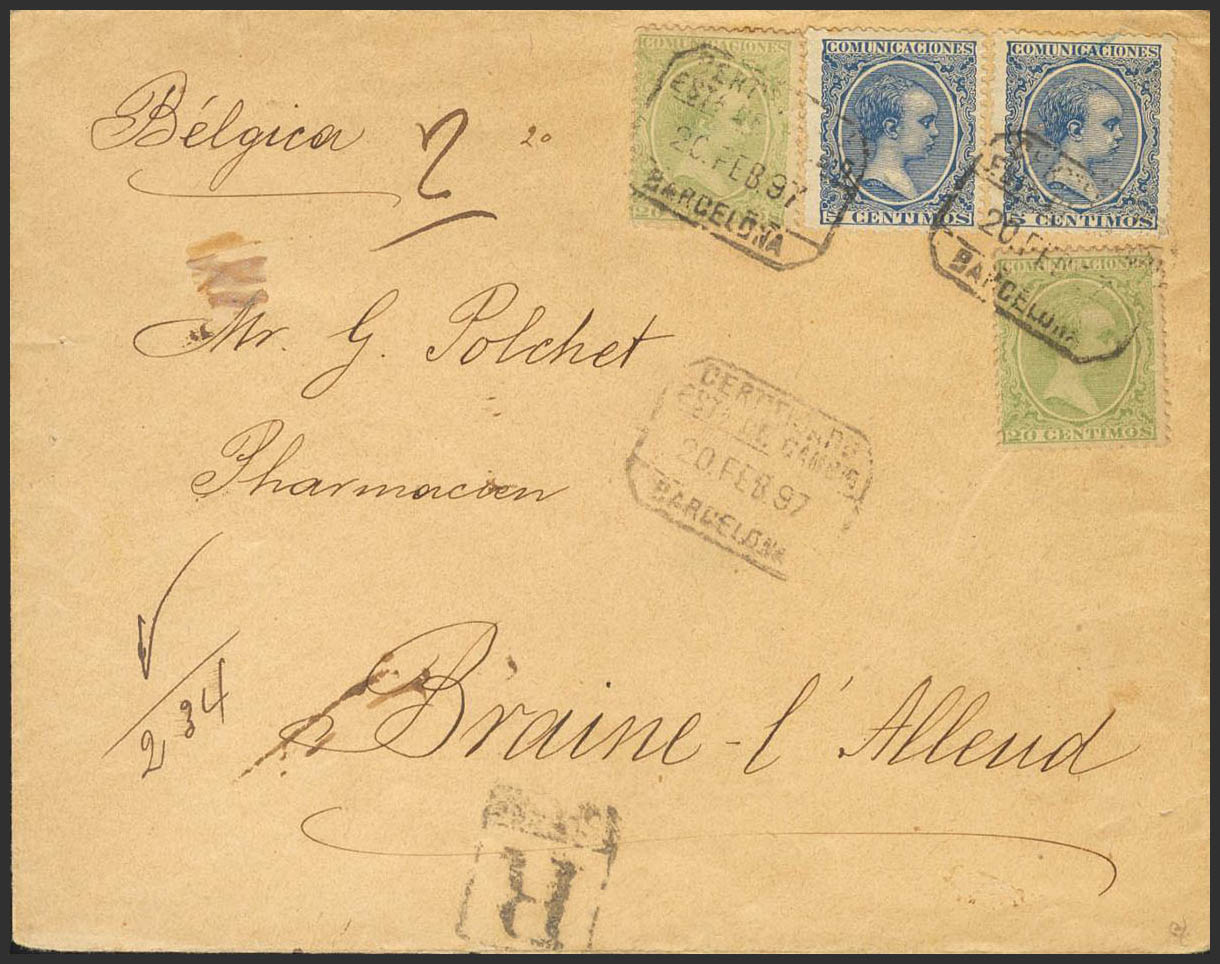 COMUNICACIONES
COMUNICACIONES
COMUNICACIONES
20
5 CENTIMOS
5 CENTIMOS
20.FEB.97
BARCELONA
20.FEB
BARCELONA
COMUNICACIONES
20 CENTIMOS
Bélgica 2 20
Mr. G. Polchet
Pharmacien
CERTIFICADO
ESTA DE CAMBIO
20.FEB.97
BARCELONA
234
Braine-l'Alleud
R